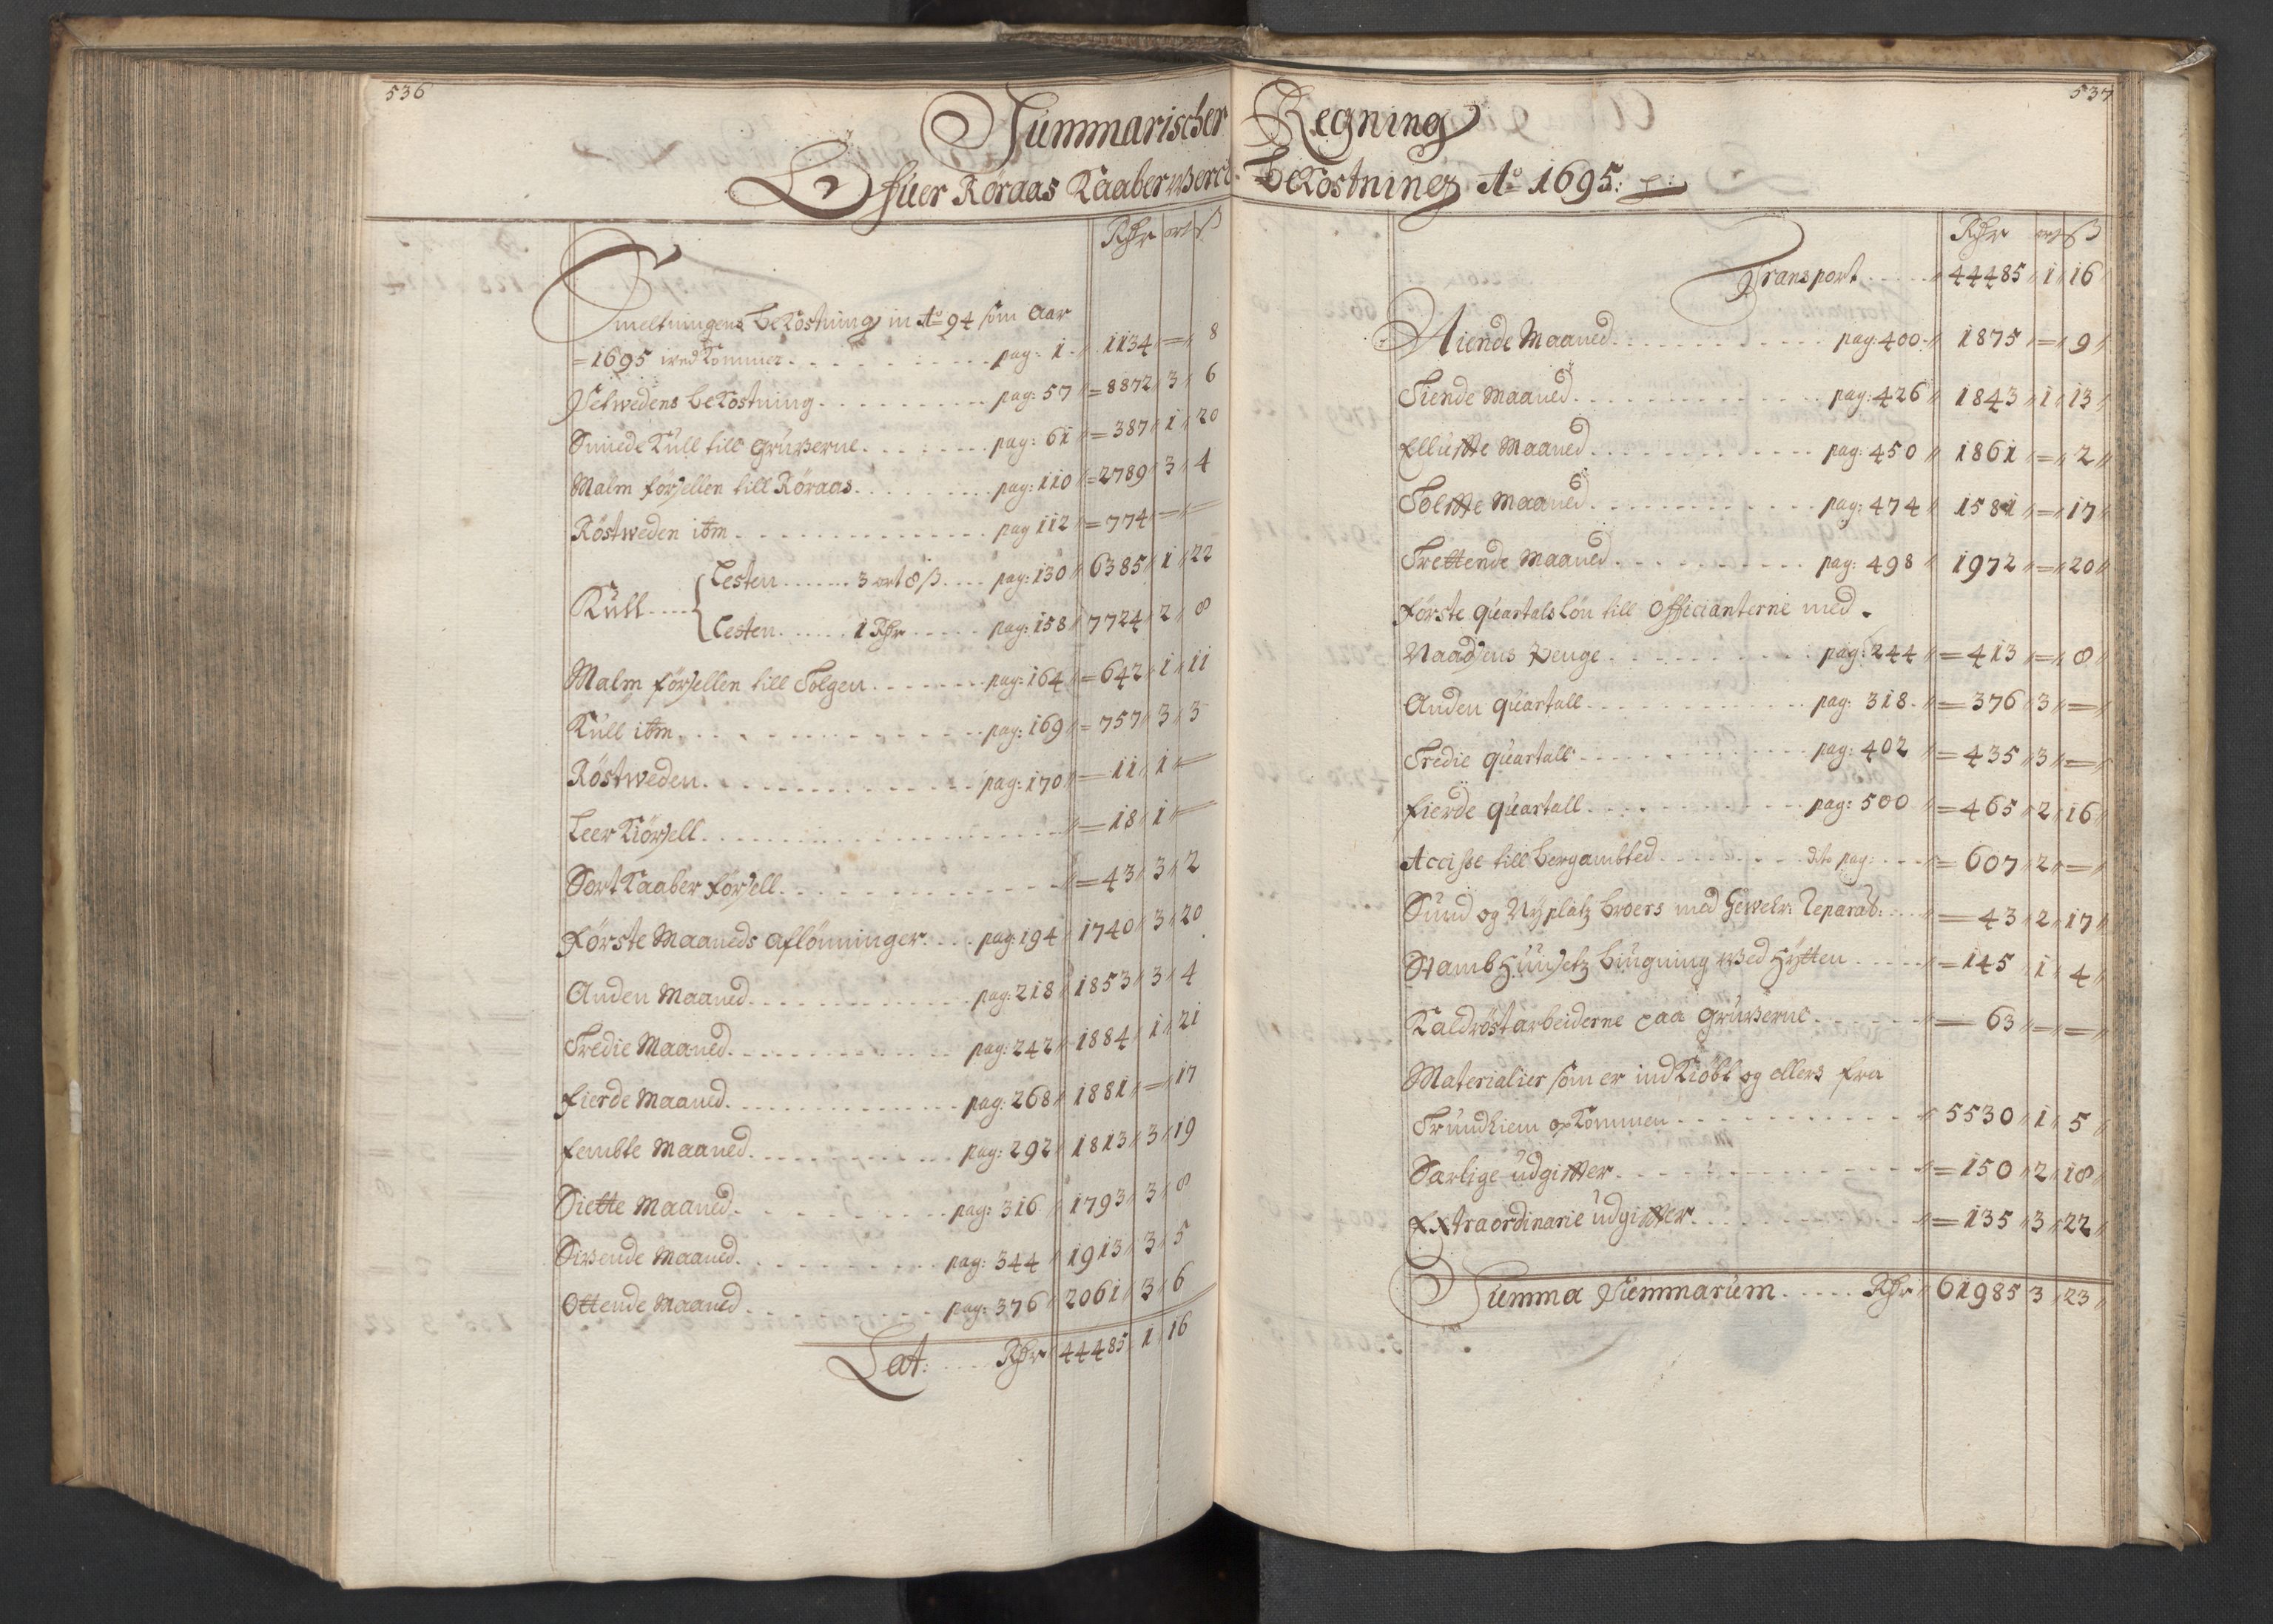 536
Summarischer
Ofuer Röraas Kaaberwerck
Rdr ort ß
Smeltningens bekostning in Ao 94 som Aar
=1695 wedkommer . . . pag: 1 " 1134 " = " 8
Setwedens bekostning . . . pag: 57 " = 8872 " 3 " 6
Smiede Kull till gruberne . . . pag: 61 " = 387 " 1 " 20
Malm förjellen till Röraas . . . pag: 110 " = 2789 " 3 " 4
Röstweden itm . . . pag 112 " = 774 " = " =
Lesten . . . 3 ort 8 ß . . . pag: 130 " 6385 " 1 " 22
Kull . . .
Lesten . . . 1 Rdr . . . pag: 158 " 7724 " 2 " 8
Malm förjellen till Tolgen . . . pag: 164 " = 642 " 1 " 11
Kull itm . . . pag: 169 " = 757 " 3 " 3
Röstweden . . . pag: 170 " = 11 " 1 " =
Leer Kiörjell . . . " = 18 " 1 " =
Sort Kaaber förjell . . . " = 43 " 3 " 2
Förste Maaneds aflönninger . . . pag: 194 " 1740 " 3 " 20
Anden Maaned . . . pag: 218 " 1853 " 3 " 4
Tredie Maaned . . . pag: 242 " 1884 " 1 " 21
Fierde Maaned . . . pag: 268 " 1881 " = " 17
Fembte Maaned . . . pag: 292 " 1813 " 3 " 19
Siette Maaned . . . pag: 316 " 1793 " 3 " 8
Siwende Maaned . . . pag: 344 " 1913 " 3 " 5
Ottende Maaned . . . pag: 376 " 2061 " 3 " 6
Lat: . . . Rdr 44485 1 16
537
Regning
bekostning Ao 1695: p:
Rdr ort ß
Transport . . . " 44485 " 1 " 16
Niende Maaned . . . pag: 400 " 1875 " = " 9 "
Tiende Maaned . . . pag: 426 " 1843 " 1 " 13 "
Ellufte Maaned . . . pag: 450 " 1861 " = " 2 "
Tolfte Maaned . . . pag: 474 " 1581 " = " 17 "
Trettende Maaned . . . pag: 498 " 1972 " = " 20 "
Förste quartals lön till Officianterne med
Naadsens Penge . . . pag: 244 " = 413 " = " 8 "
Anden quartall . . . pag: 318 " = 376 " 3 " = "
Tredie quartall . . . pag: 402 " = 435 " 3 " = "
Fierde quartall . . . pag: 500 " = 465 " 2 " 16 "
Accisse till bergambted . . . dito pag: . . . = 607 " 2 " = "
Sund og Nyplatz broers med Gewelr: Reparat: . . . = 43 " 2 " 17 "
Stamb Hunsetz bingning wed Hytten . . . " = 145 " 1 " 4 "
Kaldröst arbeiderne paa gruberne . . . " = 63 " = " = "
Materialier som er indkiöbt og ellers fra
Trundhiem opkommen . . . " 5530 " 1 " 5 "
Sarlige udgifter . . . " = 150 " 2 " 18 "
Extraordinarie udgifter . . . " = 135 " 3 " 22 "
Summa Summarum . . . Rdr " 61985 3 " 23 "